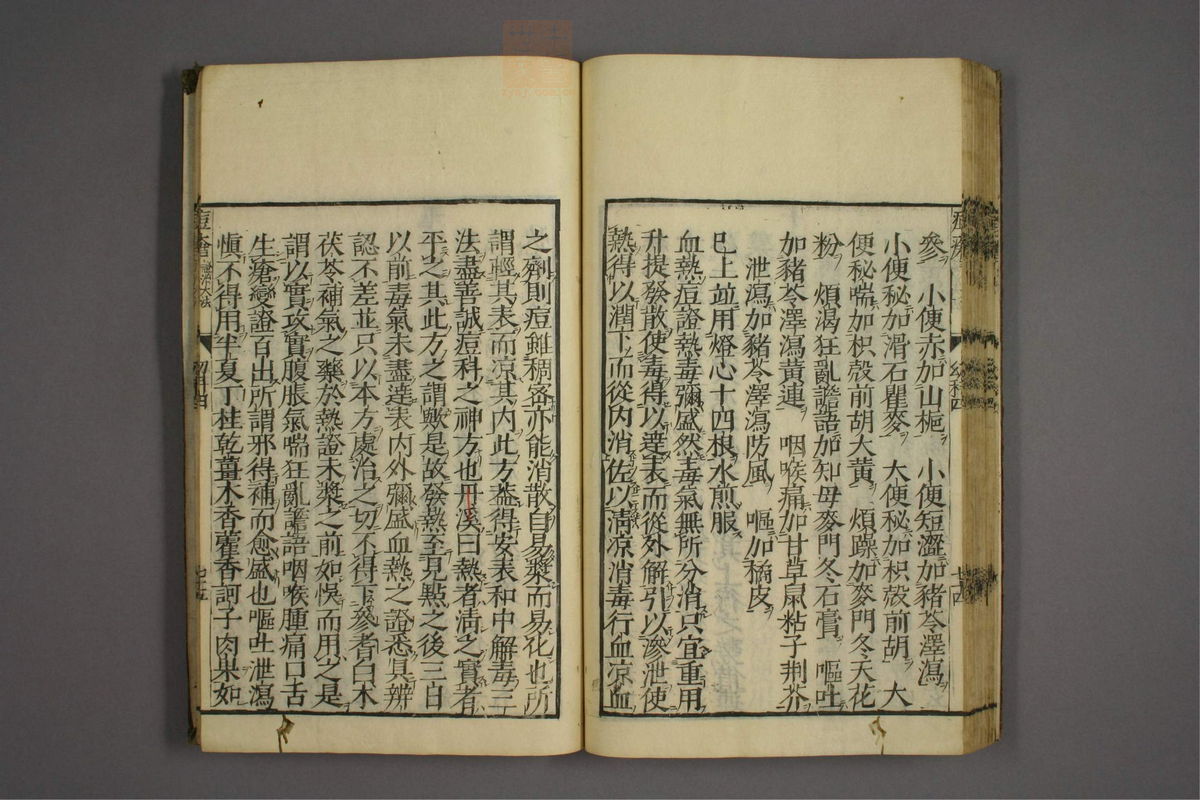 參　小便赤加山梔　小便短澀加豬苓澤瀉
小便秘加滑石瞿麥　大便秘加枳殼前胡　大
便秘喘加枳殼前胡大黃　煩躁加麥門冬天花
粉　煩渴狂亂譫語加知母麥門冬石膏　嘔吐
加豬苓澤瀉黃連　咽喉痛加甘草鼠粘子荆芥
泄瀉加豬苓澤瀉防風　嘔加橘皮
已上並用燈心十四根水煎服
血熱痘證熱毒彌盛然毒氣無所分消只宜重用
升提發散使毒得以達表而從外解引以滲泄使
熱得以潤下而從內消佐以清凉消毒行血凉血
之劑則痘雖稠密亦能消散自易漿而易化也所
謂輕其表而凉其內此方葢得安表和中解毒三
法盡善誠痘科之神方也丹溪曰熱者清之實者
平之其此方之謂歟是故發熱至見點之後三日
以前毒氣未盡達表內外彌盛血熱之證悉具辨
認不差並只以本方處治之切不得下參耆白木
茯苓補氣之藥於熱證未漿之前如悞而用之是
謂以實攻實腹脹氣喘狂亂譫語咽喉腫痛口舌
生瘡變證百出所謂邪得補而愈盛也嘔吐泄瀉
愼不得用半夏丁桂乾薑木香藿香訶子肉果如
痘瘡
幼科四
七十四